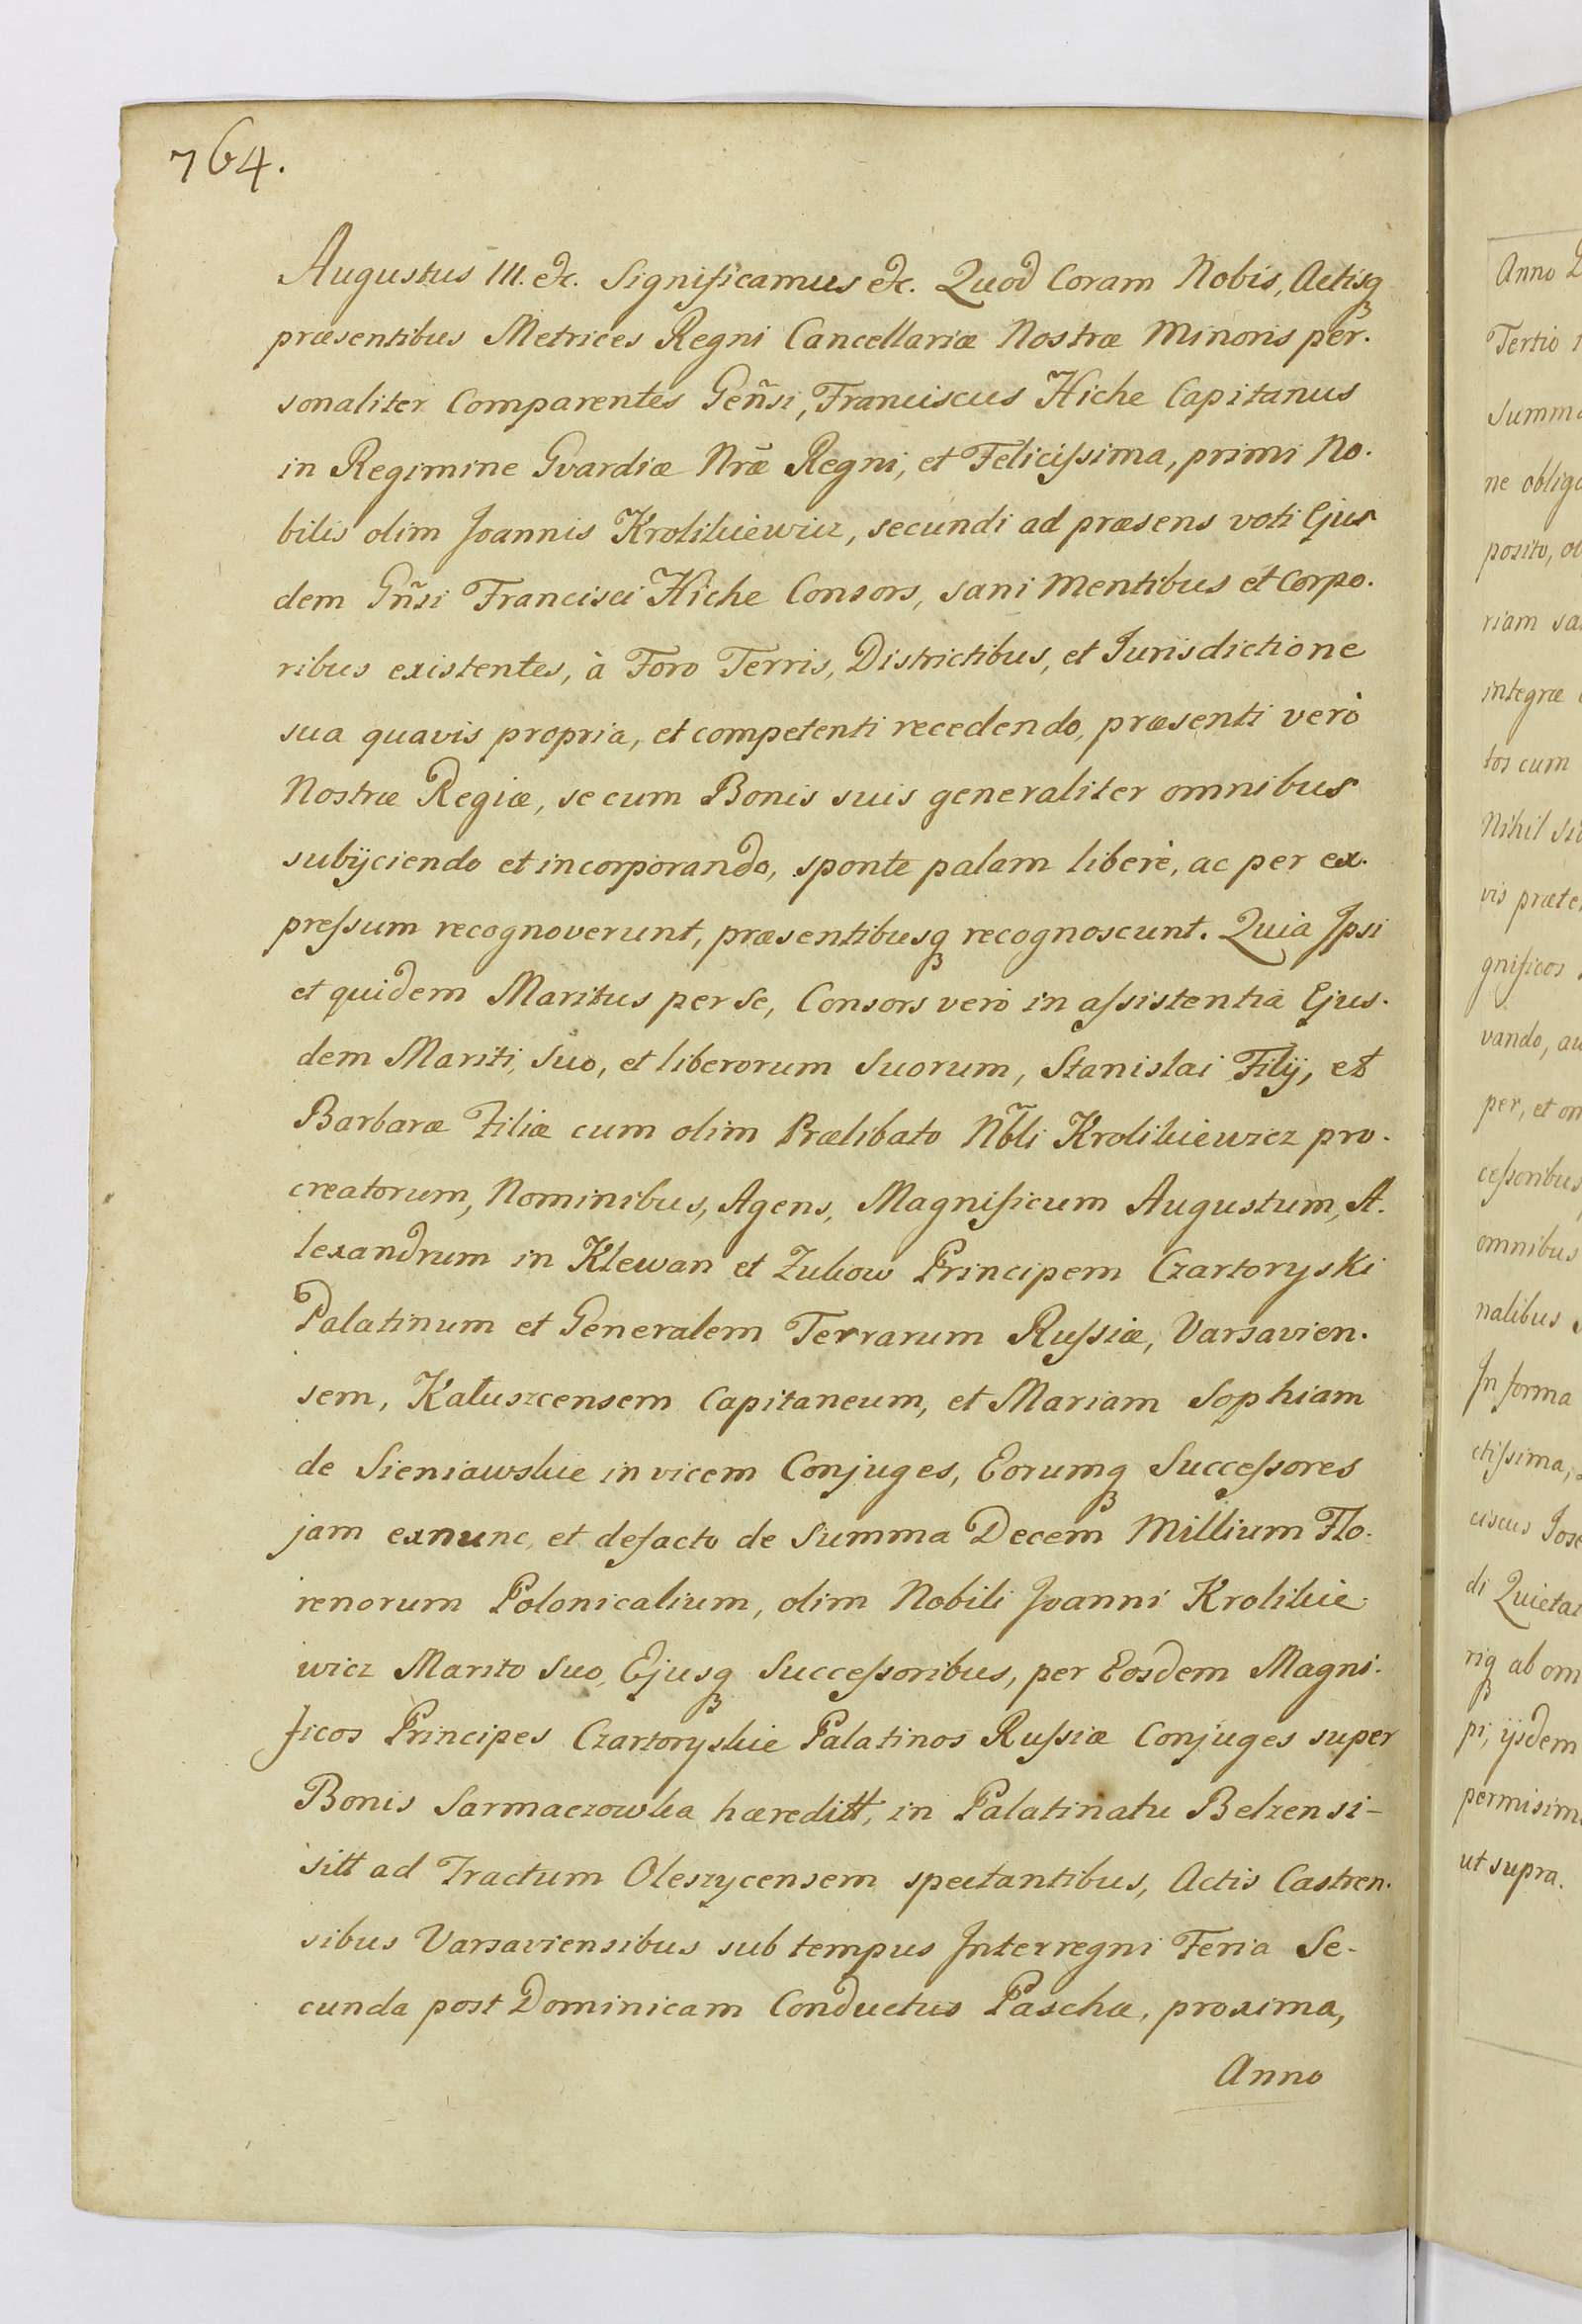 764.
Augustus III. &c. Significamus &c. Quod Coram Nobis, Actisq
præsentibus Metrices Regni Cancellariæ Nostræ Minoris per.
sonaliter Comparentes Geñsi, Franciscus Hiche Capitanus
in Regimine Gvardiæ Nræ̃ Regni, et Felicissima, primi No.
bilis olim Joannis Krolikiewicz, secundi ad præsens voti Ejus
dem Gñsi Francisci Hiche Consors, sani Mentibus et Corpo.
ribus existentes, à Foro Terris, Districtibus, et Jurisdictione
sua quavis propria, et competenti recedendo, præsenti verò
Nostræ Regiæ, se cum Bonis suis generaliter omnibus
subijciendo et incorporando, sponte palam liberè, ac per ex.
pressum recognoverunt, præsentibusq recognoscunt. Quia Ipsi
et quidem Maritus per se, Consors verò in assistentia Ejus.
dem Mariti, suo, et liberorum Suorum, Stanislai Filij, et
Barbaræ Filiæ cum olim Prælibato Nb̃li Krolikiewicz pro.
creatorum, Nominibus, Agens, Magnificum Augustum, A.
lexandrum in Klewan et Zukow Principem Czartoryski
Palatinum et Generalem Terrarum Russiæ, Varsavien.
sem, Kałuszcensem Capitaneum, et Mariam Sophiam
de Sieniawskie invicem Conjuges, Eorumq Successores
jam exnunc, et defacto de Summa Decem Millium Flo.
renorum Polonicalium, olim Nobili Joanni Krolikie.
wicz Marito Suo, Ejusq Successoribus, per Eosdem Magni.
ficos Principes Czartoryskie Palatinos Russiæ Conjuges super
Bonis Sarmaczowka hæreditt, in Palatinatu Belzensi-
sitt ad Tractum Oleszycensem spectantibus, Actis Castren.
sibus Varsaviensibus sub tempus Interregni Feria Se-
cunda post Dominicam Conductus Pascha, proxima,
Anno
Anno
Tertio
Summa
ne obliga
posito,
riam sa
integræ
tos cum
Nihil
vis præte
gnificos
vando, au
per, et om
cessoribus
omnibus
nalibus
In forma
ctissima,
ciscus Jose
di Quietat
riq ab om
pi, ijsdem
permisim
ut supra.